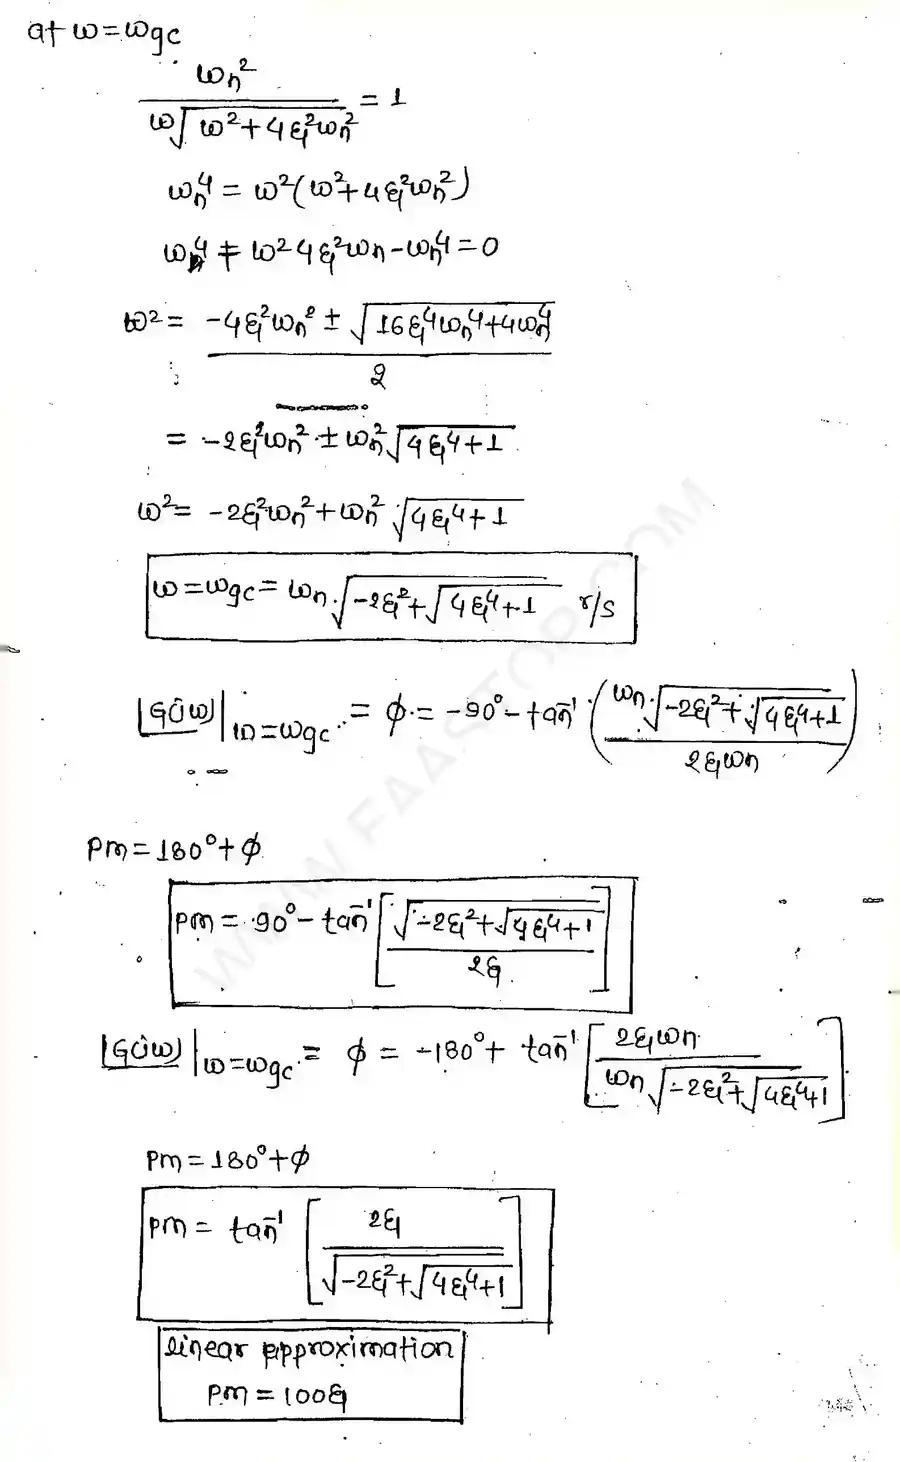 at ω=ωgc
ωn² / ω√(ω²+4ξ²ωn²) = 1
ωn⁴ = ω²(ω²+4ξ²ωn²)
ωn⁴ + ω²4ξ²ωn-ωn⁴=0
ω² = (-4ξ²ωn² ± √(16ξ⁴ωn⁴+4ωn⁴)) / 2
= -2ξ²ωn² ± ωn²√(4ξ⁴+1)
ω² = -2ξ²ωn²+ωn²√(4ξ⁴+1)
ω=ωgc= ωn√(-2ξ²+√(4ξ⁴+1)) r/s
∠G(jω)|ω=ωgc = φ = -90°-tan⁻¹(ωn√(-2ξ²+√(4ξ⁴+1)) / 2ξωn)
PM=180°+φ
PM = 90°-tan⁻¹[√(-2ξ²+√(4ξ⁴+1)) / 2ξ]
∠G(jω)|ω=ωgc = φ = -180°+ tan⁻¹[2ξωn / ωn√(-2ξ²+√(4ξ⁴+1))]
PM=180°+φ
PM = tan⁻¹[2ξ / √(-2ξ²+√(4ξ⁴+1))]
linear approximation
PM = 100ξ
WWW.FAASTOP.COM